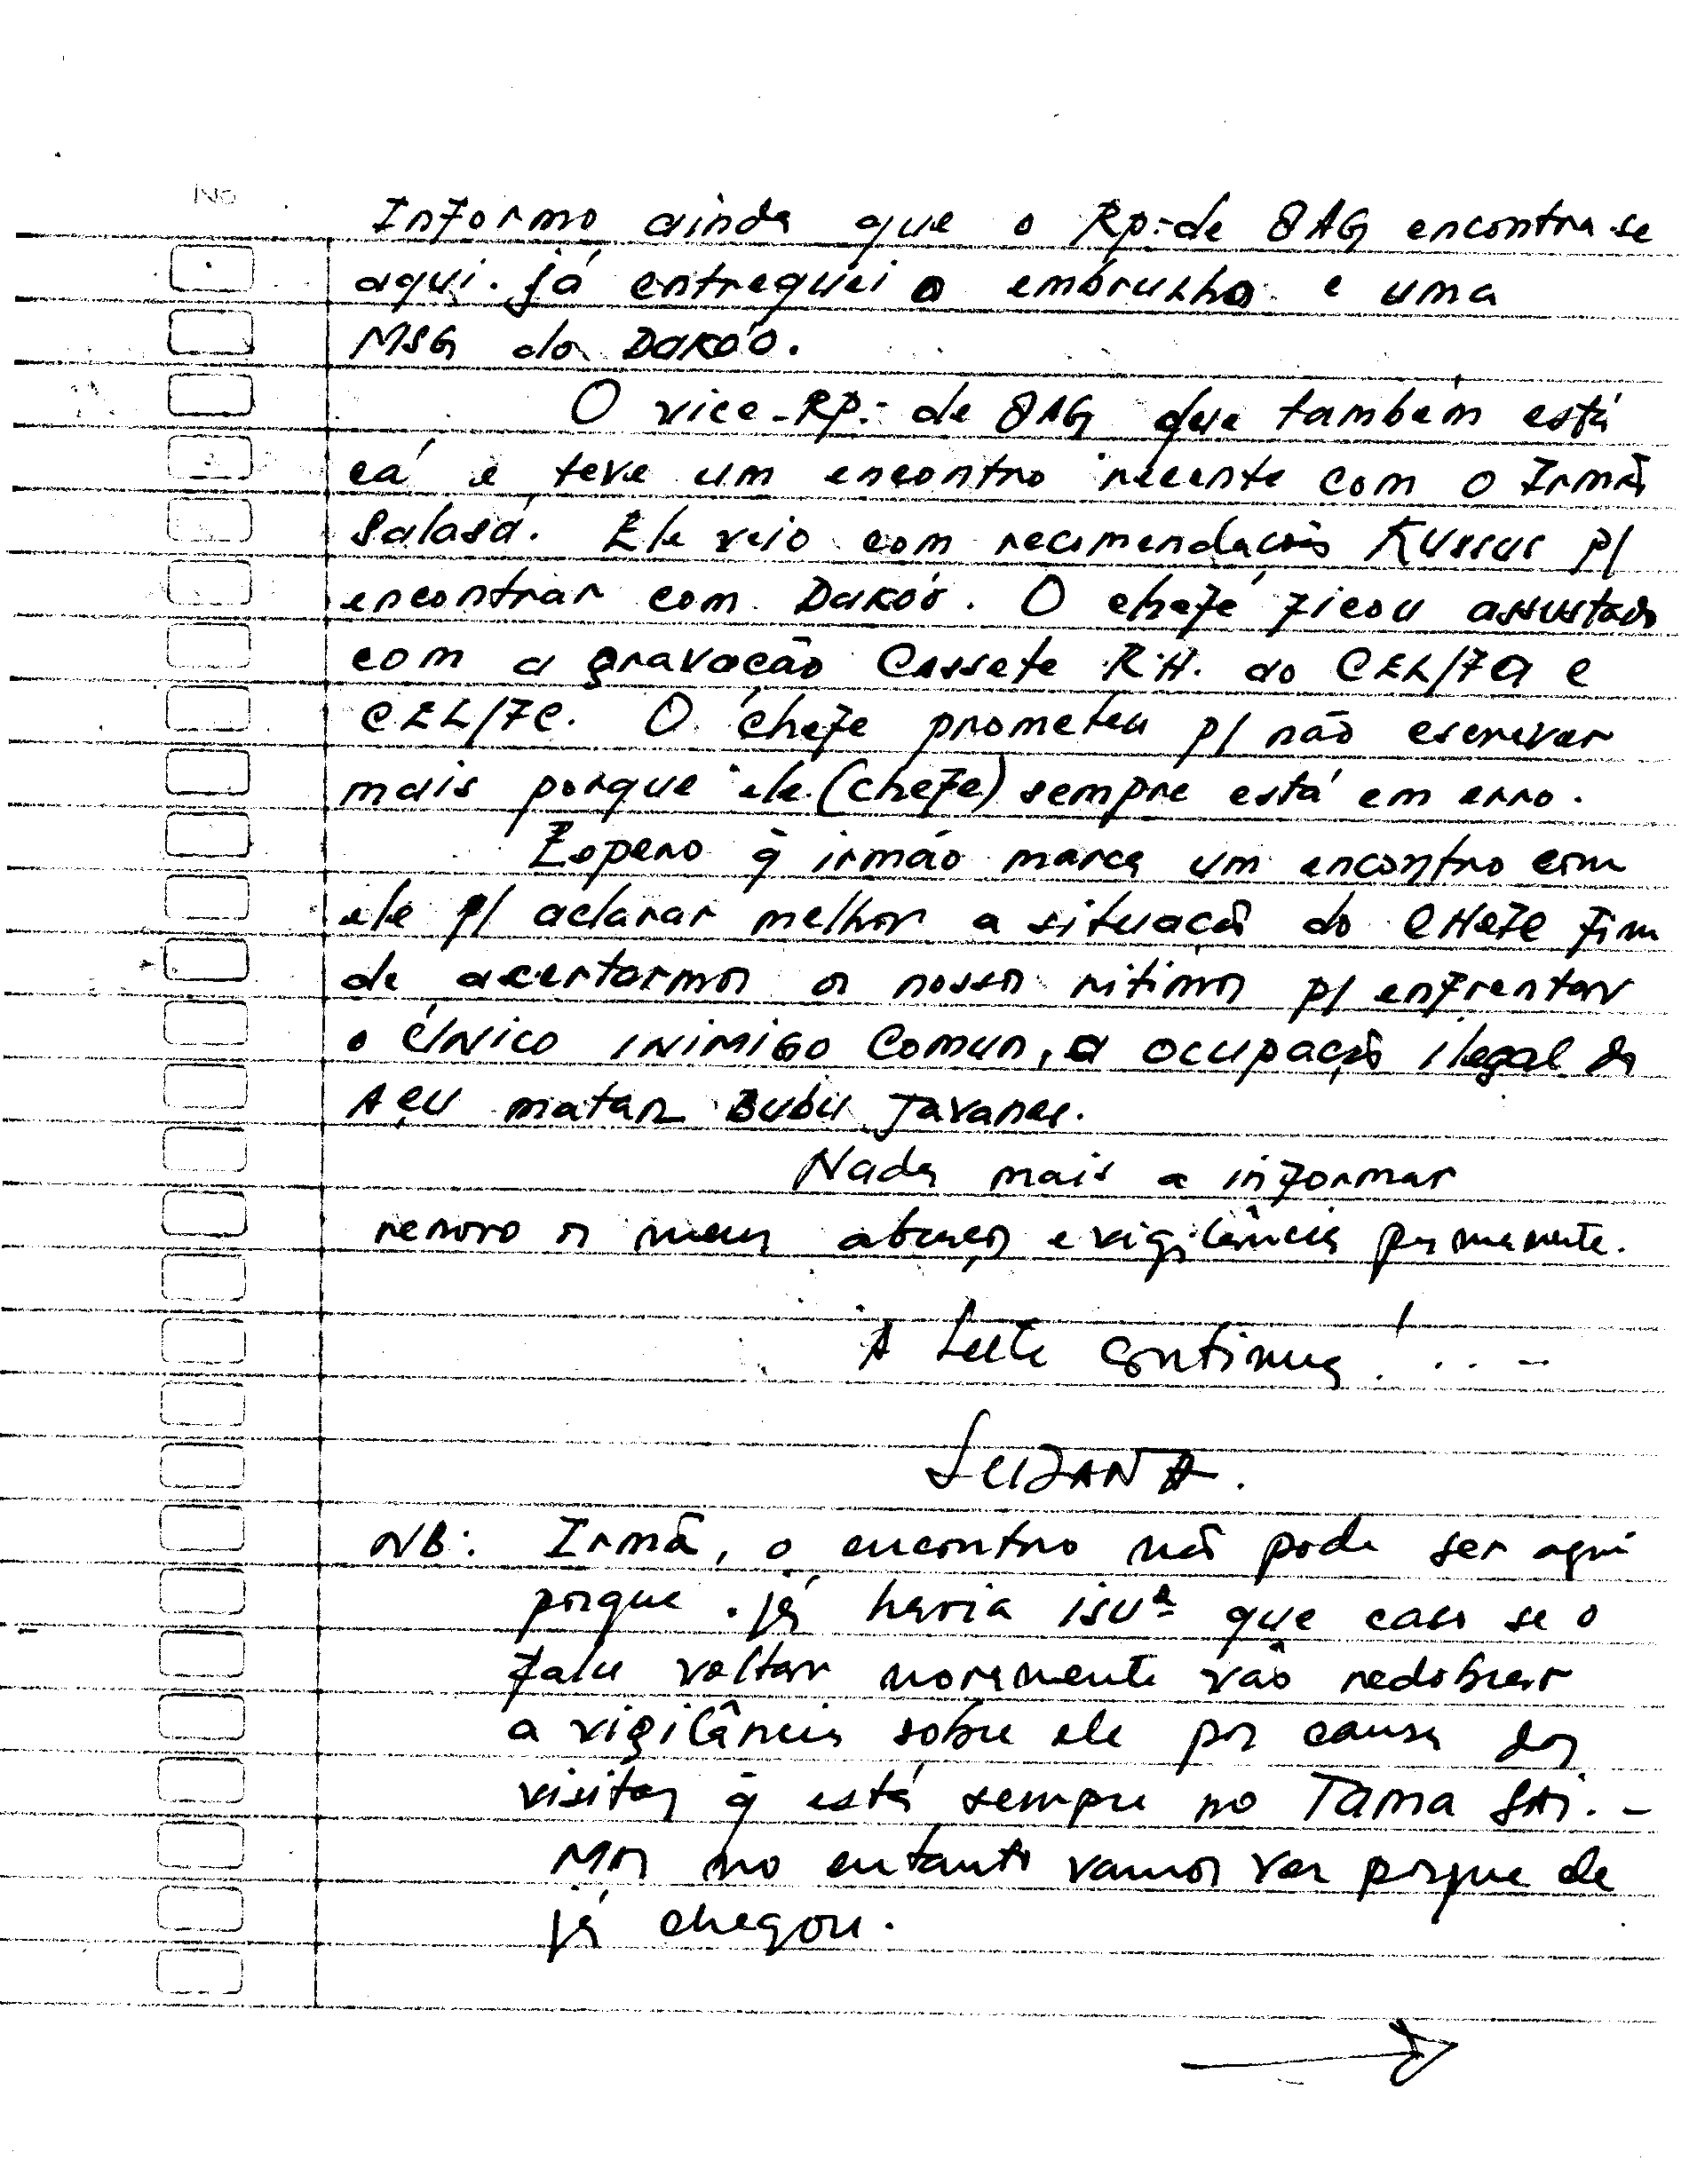 No
Informo ainda que o Rp:-de 8AG encontra-se
aqui. Já entreguei o embrulho e uma
MSG do DaKóo.
O vice-RP:- de 8AG que também está
cá e teve um encontro recente com o Irmão
Salasá. Ele veio com recomendacões Kussus p/
encontrar com Dakóo. O chefe ficou assustado
com a gravacão Cassete R.H. do CEL/7A e
CEL/7C. O chefe prometeu p/ não escrever
mais porque ele (chefe) sempre está em erro.
Espero q̃ irmão marca um encontro com
ele p/ aclarar melhor a situacão do CHeFe fim
de acertarmos os nossos ritimos p/ enfrentar
o único INIMIGO Comun, a ocupação ilegal do
Açu matan Bubu Javanes.
Nada mais a informar
renovo os meus abraços e vigilância permanente.
A Luta continua! . . -
LUZANA.
NB: Irmão, o encontro não pode ser aqui
porque já havia isuª que caso se o
Falu voltar novamente vão redobrar
a vigilância sobre ele por causa das
visitas q̃ está sempre no Tama SAi. -
Mas no entanto vamos ver porque ele
já chegou.